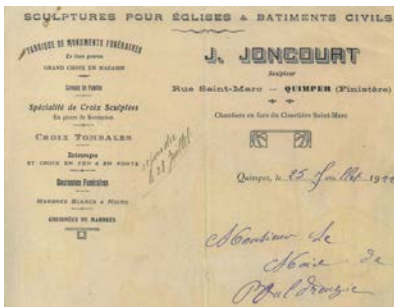 SCULPTURES POUR ÉGLISES & BATIMENTS CIVILS
FABRIQUE DE MONUMENTS FUNÉRAIRES
En tous genres
GRAND CHOIX EN MAGASIN
Caveaux de Famille
Spécialité de Croix Sculptées
En pierre de Kersanton
CROIX TOMBALES
Entourages
ET CROIX EN FER & EN FONTE
Couronnes Funéraires
MARBRES BLANCS & NOIRS
CHEMINÉES DE MARBRES
J. JONCOURT
Sculpteur
Rue Saint-Marc — QUIMPER (Finistère)
Chantiers en face du Cimetière Saint-Marc
le 28 juillet
Quimper, le 25 Juillet 19
Monsieur Le
Maire de
Pouldreuzic